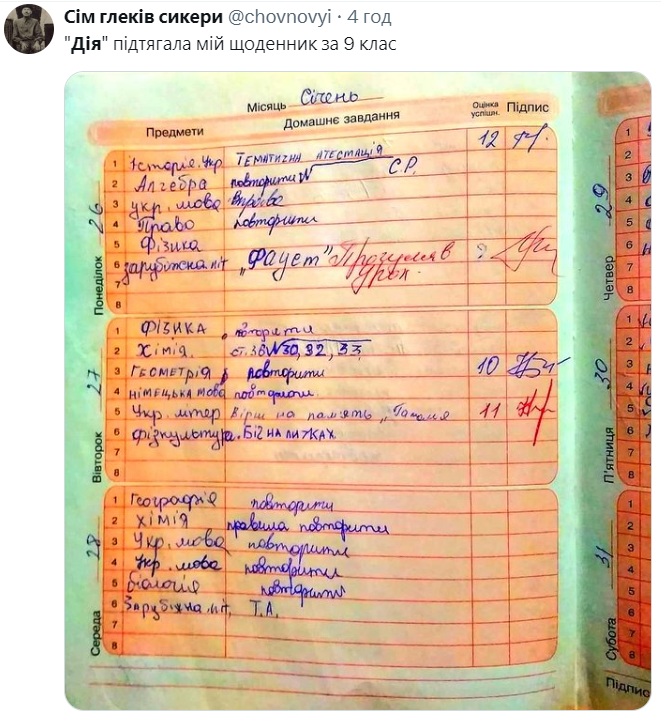 Сім глеків сикери @chovnovyi · 4 год
"Дія" підтягала мій щоденник за 9 клас
Місяць Січень
Предмети Домашнє завдання Оцінка успішн. Підпис
Понеділок 26
1 Історія. Укр. Тематична атестація 12
2 Алгебра повторити С.Р.
3 укр. мова вправа
4 Право повторити
5 Фізика
6 зарубіжна літ „Фауст" Прогуляв урок. ?
7
8
Вівторок 27
1 ФІЗИКА повторити
2 Хімія. ст. 36 №30, 32, 33
3 Геометрія повторити 10
4 німецька мова повторити
5 Укр. літер вірш на память „ 11
6 фізкультура. БІГ НА ЛИЖАХ
7
8
Середа 28
1 Географія повторити
2 хімія правила повторити
3 Укр. мова повторити
4 Укр. мова повторити
5 біологія повторити
6 Зарубіжна літ. Т.А.
7
8
Четвер 29
1
2
3
4
5
6
7
8
П'ятниця 30
1
2
3
4
5
6
7
8
Субота 31
1
2
3
4
5
6
7
8
Підпис